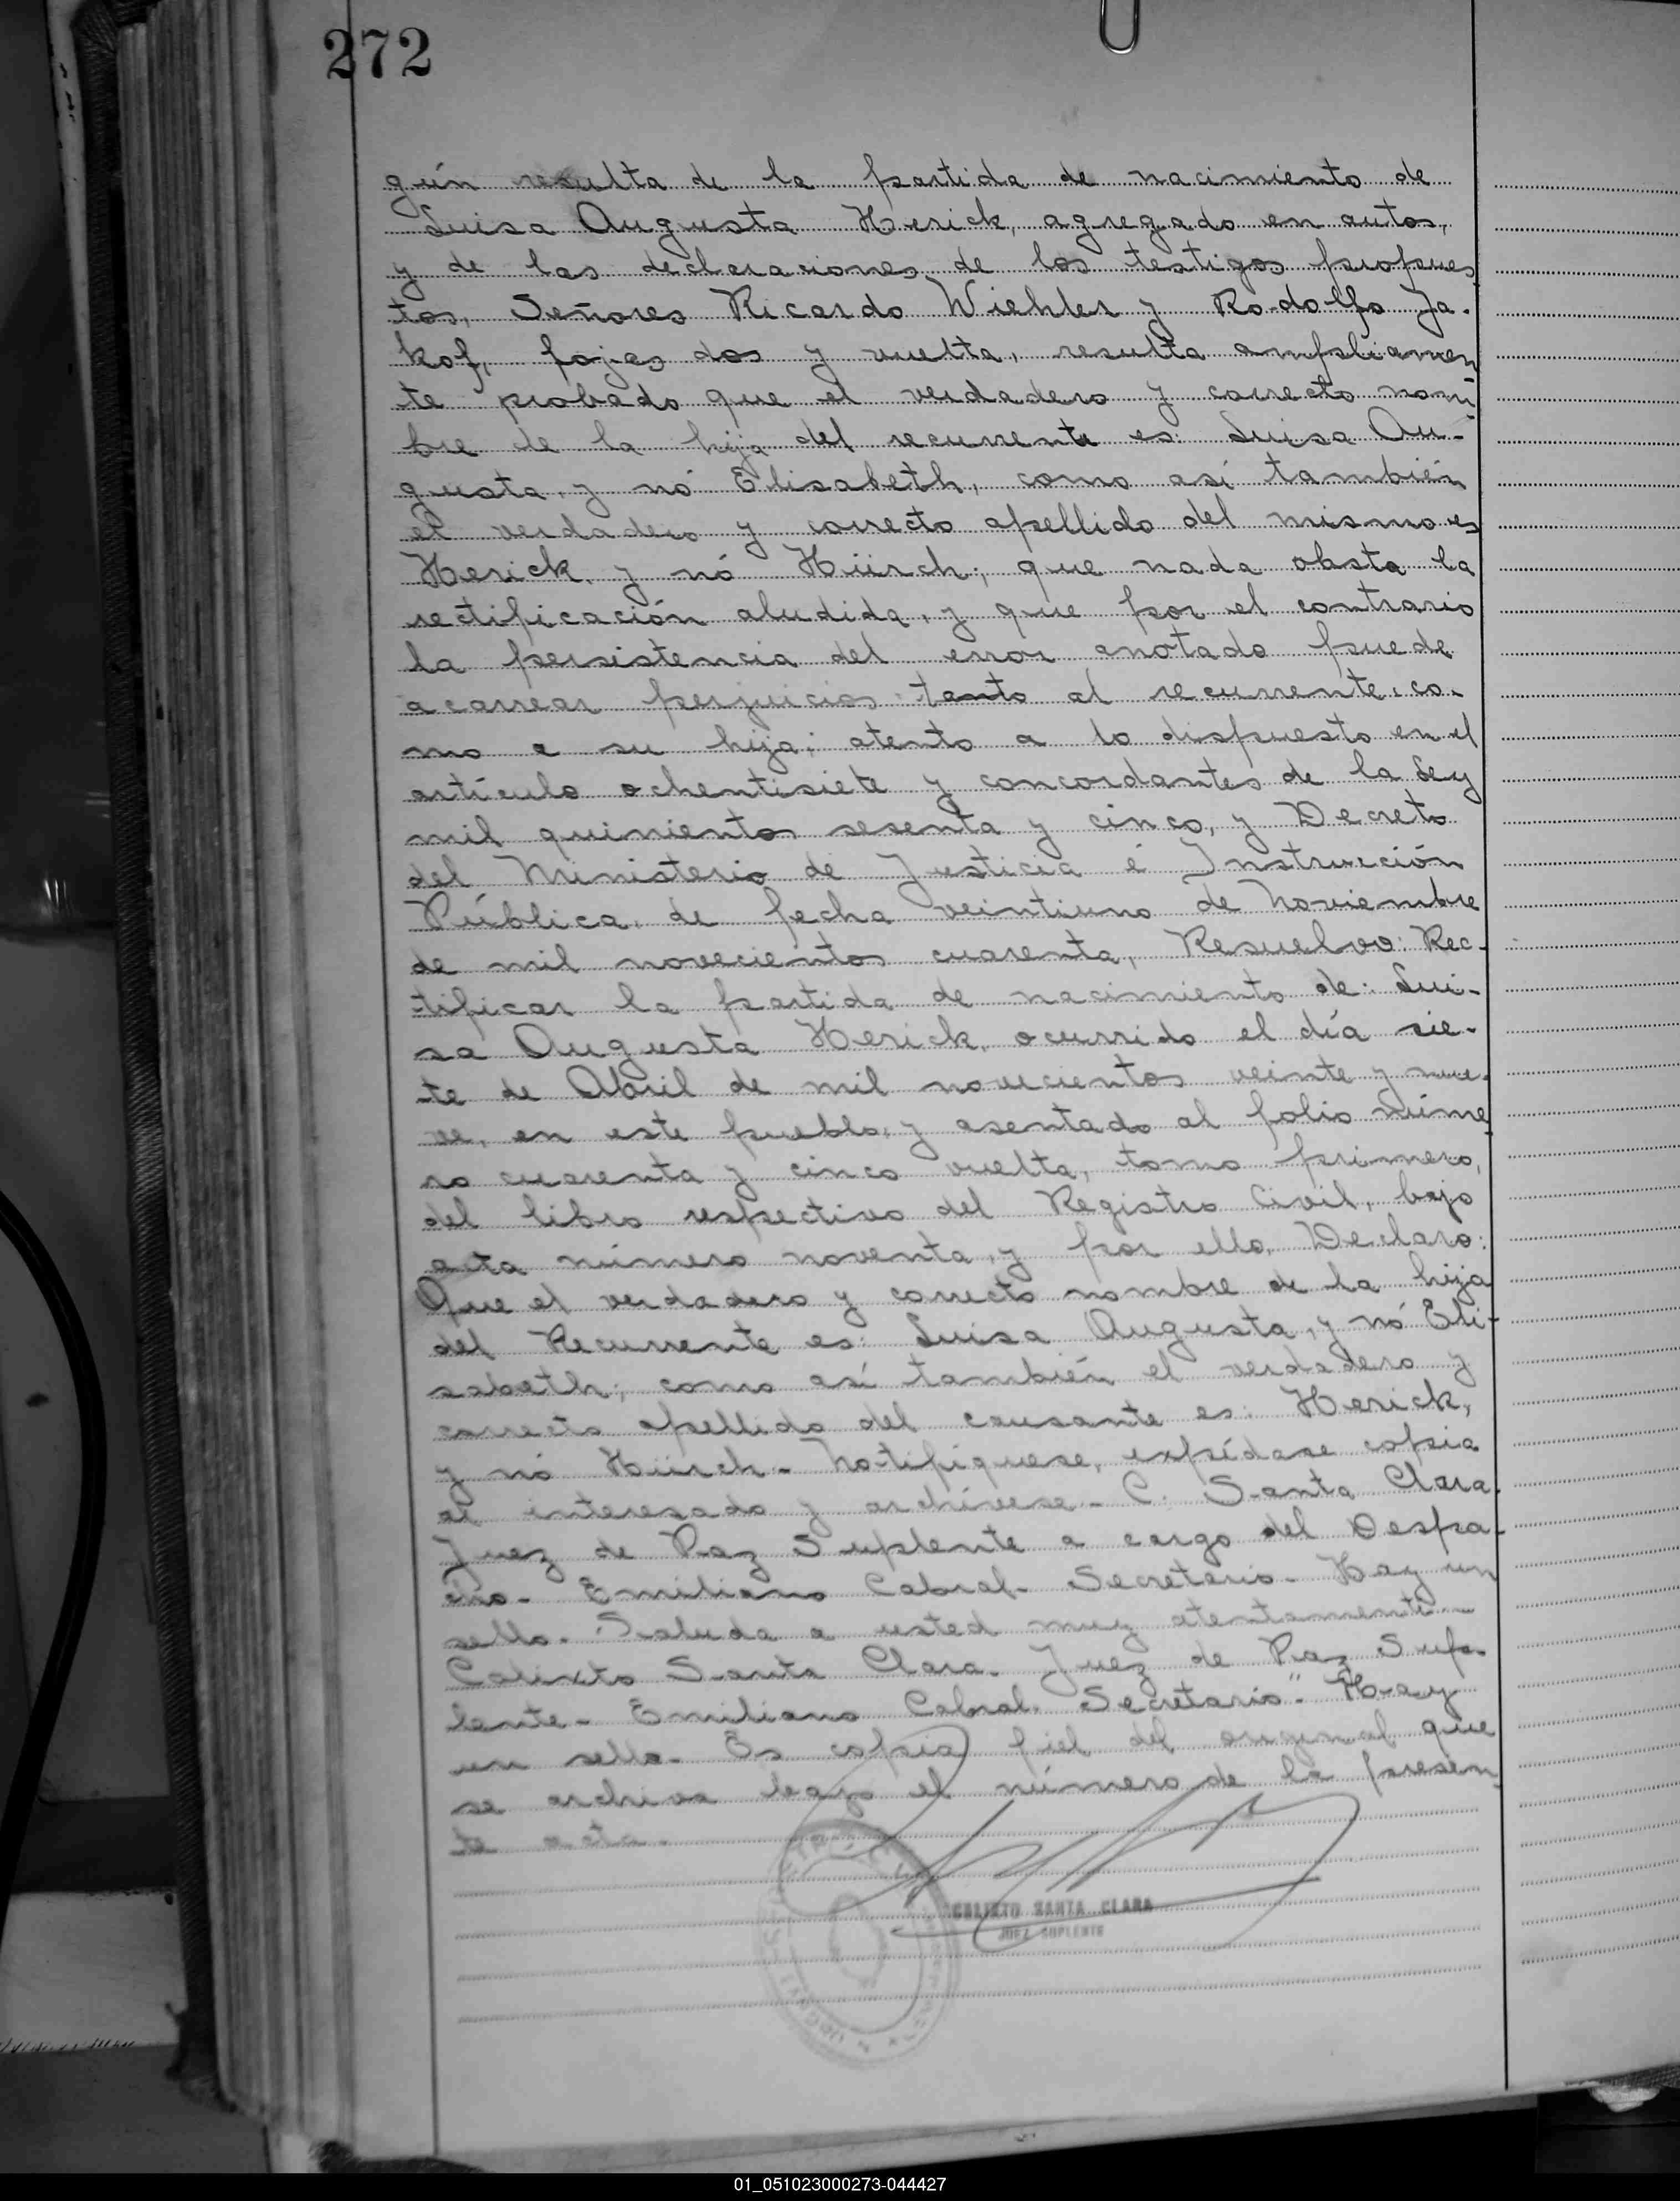 272
gún resulta de la partida de nacimiento de
Luisa Augusta Herick, agregado en autos,
y de las declaraciones de los testigos propues
tos, Señores Ricardo Wiehler y Rodolfo Ja-
kof, fojas dos y vuelta, resulta ampliamen
te probado que el verdadero y correcto nom
bre de la hija del recurrente es: Luisa Au-
gusta, y nó Elisabeth, como así también
el verdadero y correcto apellido del mismo es
Herick, y nó Hürch; que nada obsta la
rectificación aludida, y que por el contrario
la persistencia del error anotado puede
acarrear perjuicios tanto al recurrente co-
mo a su hija; atento a lo dispuesto en el
artículo ochentisiete y concordantes de la Ley
mil quinientos sesenta y cinco, y Decreto
del Ministerio de Justicia é Instrucción
Pública, de fecha veintiuno de Noviembre
de mil novecientos cuarenta, Resuelvo: Rec-
tificar la partida de nacimiento de: Lui-
sa Augusta Herick, ocurrido el día sie-
te de Abril de mil novecientos veinte y nue-
ve, en este pueblo, y asentado al folio núme
ro cuarenta y cinco vuelta, tomo primero,
del libro respectivo del Registro Civil, bajo
acta número noventa, y por ello, Declaro:
Que el verdadero y correcto nombre de la hija
del Recurrente es: Luisa Augusta, y nó Eli-
sabeth; como así también el verdadero y
correcto apellido del causante es: Herick,
y nó Hürch - Notifíquese, expídase copia
al interesado y archívese - C. Santa Clara.
Juez de Paz Suplente a cargo del Despa-
cho - Emiliano Cabral - Secretario - Hay un
sello - Saluda a usted muy atentamente -
Calixto Santa Clara - Juez de Paz Sup-
lente - Emiliano Cabral. Secretario" - Hay
un sello - Es copia fiel del original que
se archiva bajo el número de la presen
te acta -
CALIXTO SANTA CLARA
JUEZ SUPLENTE
01_051023000273-044427